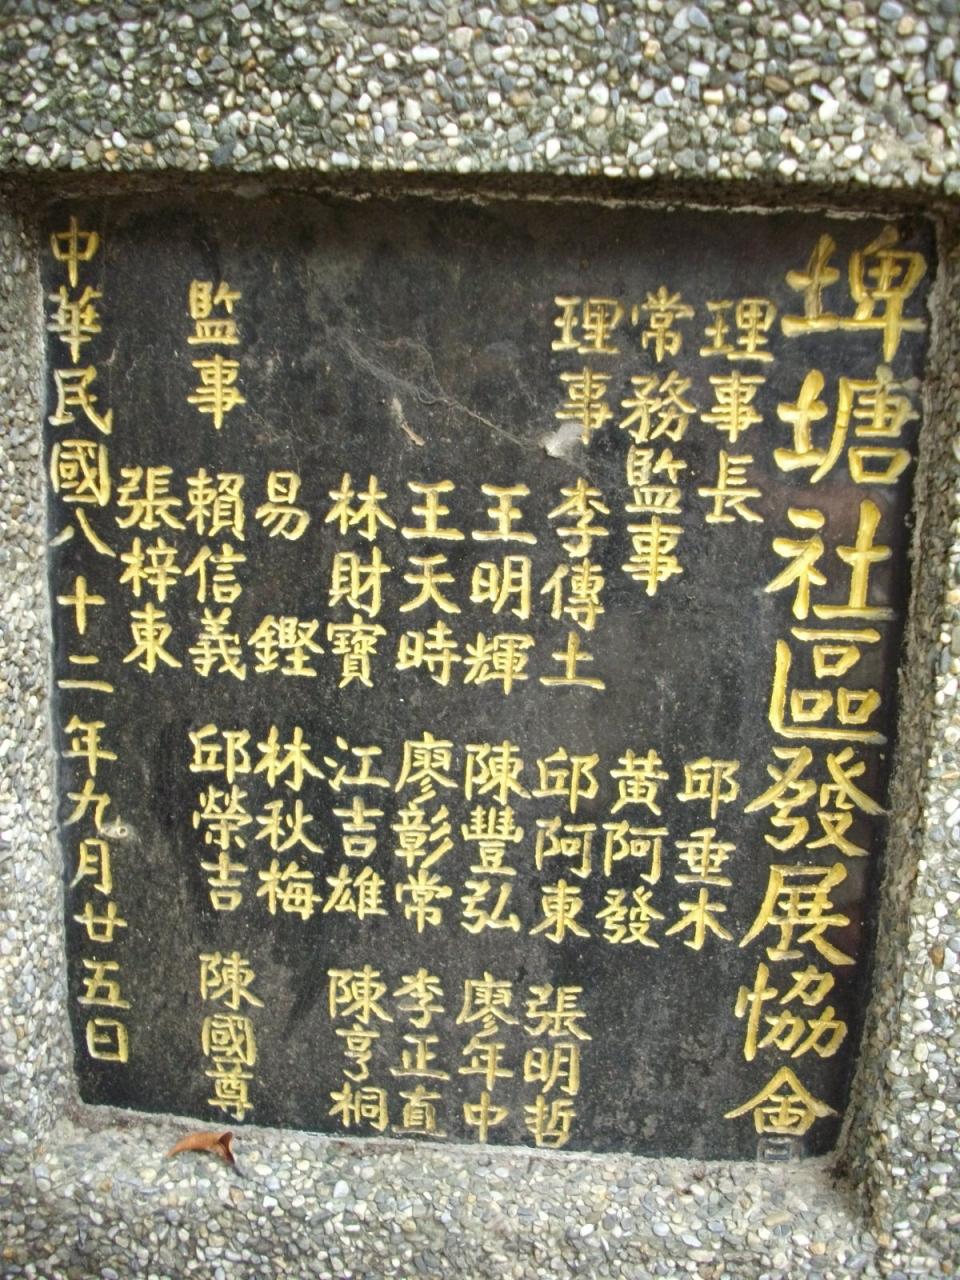 埤塘社區發展協會
理事長 邱垂木
常務監事 黃阿發
理事 李傳土 邱阿東 張明哲
王明輝 陳豐弘 廖年中
王天時 廖彰常 李正直
林財寶 江吉雄 陳亨桐
易鏗 林秋梅
監事 賴信義 邱榮吉 陳國尊
張梓東
中華民國八十二年九月廿五日